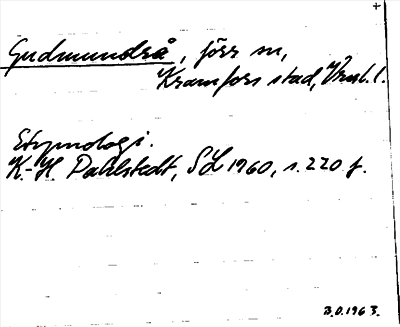 +
Gudmundrå, förr sn,
Kramfors stad, Vrml. l.
Etymologi.
K.-H. Dahlstedt, SoL 1960, s. 220 f.
B.O. 1963.